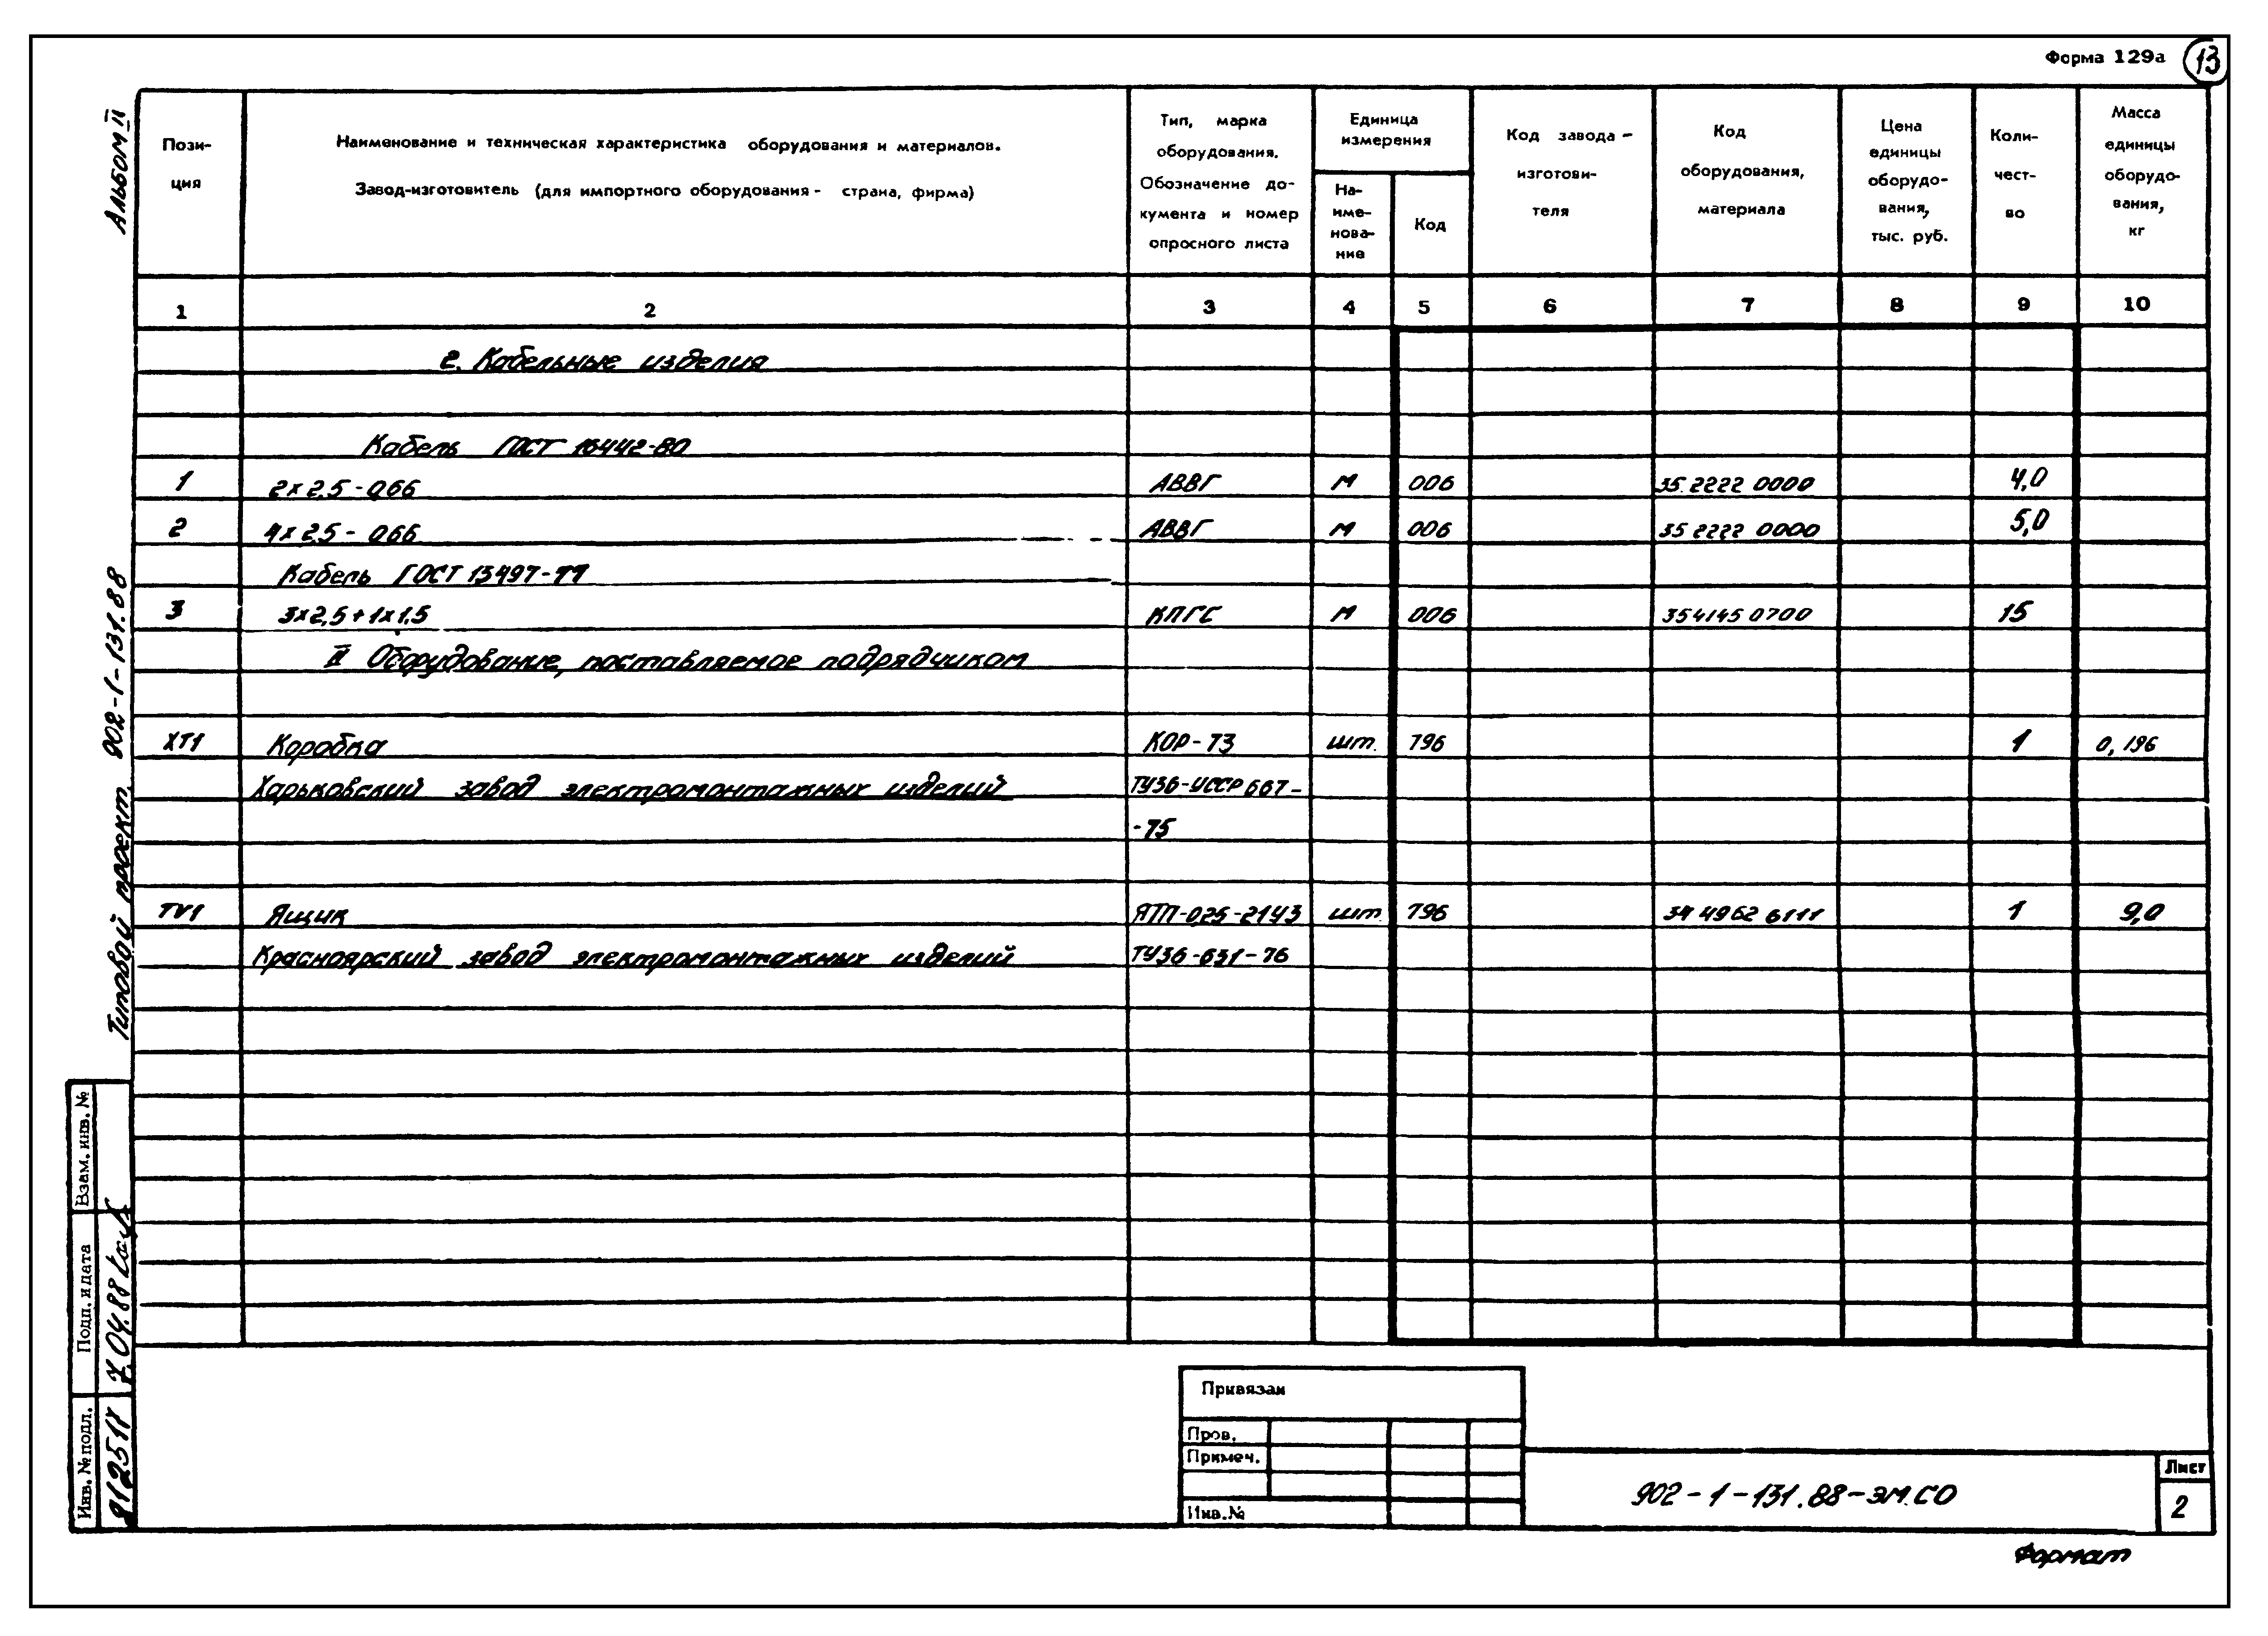 Форма 129а
13
Альбом II
Типовой проект 902-1-131.88
Пози-
ция
Наименование и техническая характеристика оборудования и материалов.
Завод-изготовитель (для импортного оборудования - страна, фирма)
Тип, марка
оборудования.
Обозначение до-
кумента и номер
опросного листа
Единица
измерения
На-
име-
нова-
ние
Код
Код завода -
изготови-
теля
Код
оборудования,
материала
Цена
единицы
оборудо-
вания,
тыс. руб.
Коли-
чест-
во
Масса
единицы
оборудо-
вания,
кг
1 2 3 4 5 6 7 8 9 10
2. Кабельные изделия
Кабель ГОСТ 16442-80
1 2х2,5-0,66 АВВГ м 006 35.2222 0000 4,0
2 4х2,5-0,66 АВВГ м 006 35 2222 0000 5,0
Кабель ГОСТ 13497-77
3 3х2,5+1х1,5 КПГС м 006 354145 0700 15
II Оборудование, поставляемое подрядчиком
ХТ1 Коробка КОР-73 шт. 796 1 0,196
Харьковский завод электромонтажных изделий ТУ36-УССР 667-
-75
TV1 Ящик ЯТП-0,25-21У3 шт. 796 34 4962 6111 1 9,0
Красноярский завод электромонтажных изделий ТУ36-631-76
Взам. инв. №
Подп. и дата
7.04.88
Инв. № подл.
Привязан
Пров.
Примеч.
Инв. №
902-1-131.88-ЭМ.СО
Лист
2
Формат